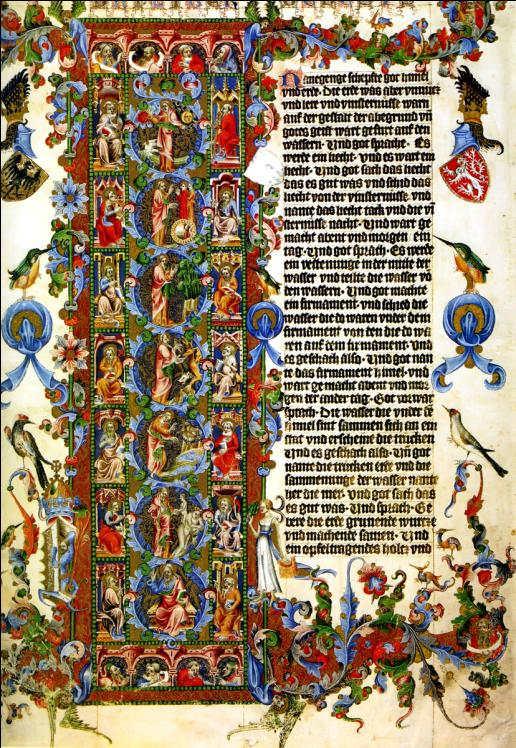 anegenge schepfte got himel
vnd erde. Die erde was aber vnnutz
vnd lere vnd vinsternusse warn
auf der gestalt der abegrund vn
gotes geist wart gefurt auf den
wassern. Vnd got sprache. Es
werde ein liecht. vnd es wart ein
liecht. Vnd got sach das liecht
das es gut was vnd schid das
liecht von der vinsternusse. vnd
nante das liecht tack vnd die vi
sternusse nacht. Vnd wart ge
macht abent vnd morgen ein
tag. Vnd got sprach. Es werde
ein vestenunge in der mitte der
wasser vnd teilte die wasser vo
den wassern. Vnd got machte
ein firmament. vnd schied die
wasser die do waren vnder dem
firmament von den die do wa
ren auf dem firmament. vnd
es geschach also. Vnd got nan
te das firmament himel. vnd
wart gemacht abent vnd mor
gen der ander tag. Got vorwar
sprach. Die wasser die vnder de
himel sint sammen sich an ein
stat vnd erscheine die trucken
Vnd es geschach also. Vn got
nante die trucken erde vnd die
sammenunge der wasser nante
her die mer. vnd got sach das
es gut was. Vnd sprach. Ge
bere die erde grunende wurze
vnd machende samen. Vnd
ein opfeltragendes holtz vnd